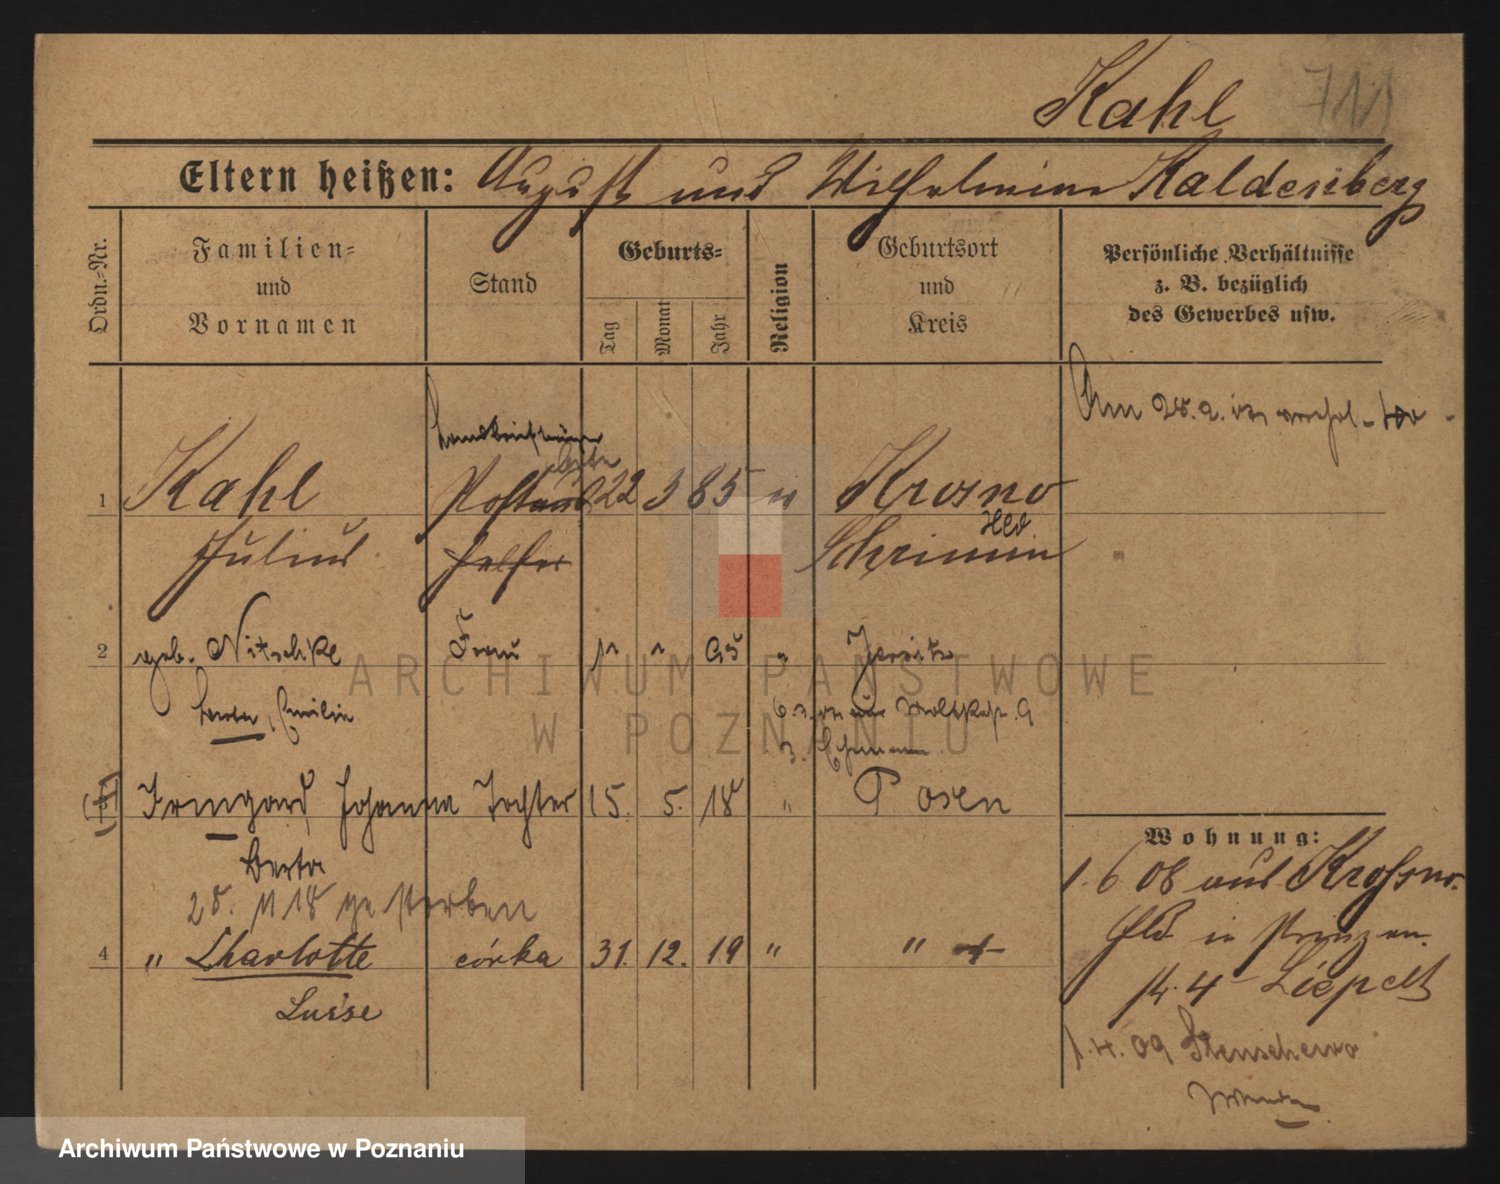 Kahl 711
Eltern heißen: August und Wilhelmine Kaldesiberg
Ordn.-Nr.
Familien- und Vornamen
Stand
Geburts-
Tag
Monat
Jahr
Religion
Geburtsort und Kreis
Persönliche Verhältnisse
z. B. bezüglich
des Gewerbes usw.
Am 28. 9.
Landbriefträger
1 Kahl 22 3 85 " Krosno
Hld
Julius helfer Schrimm
2 geb. Nitschke Frau 95 " Jersitz
Berta, Emilie
Irmgard Johanna Tochter 15. 5. 18 " Posen
Berta
28. 11 18 gestorben
4 " Charlotte córka 31. 12. 19 " "
Luise
Wohnung:
1. 6 08 aus Krossno
Hld in Prinzen
str. 4 Liepelt
1. 4. 09 Stenschewo
ARCHIWUM PAŃSTWOWE
W POZNANIU
Archiwum Państwowe w Poznaniu